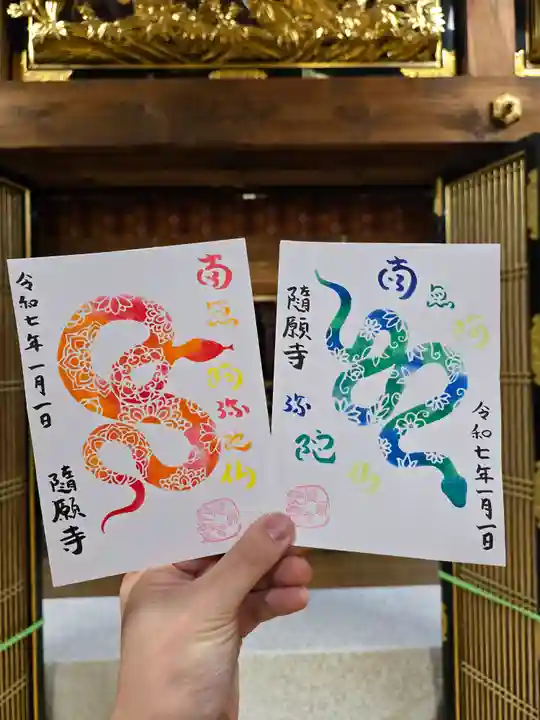 南無阿弥陀仏
令和七年一月一日
隨願寺
南無阿弥陀仏
隨願寺
令和七年一月一日